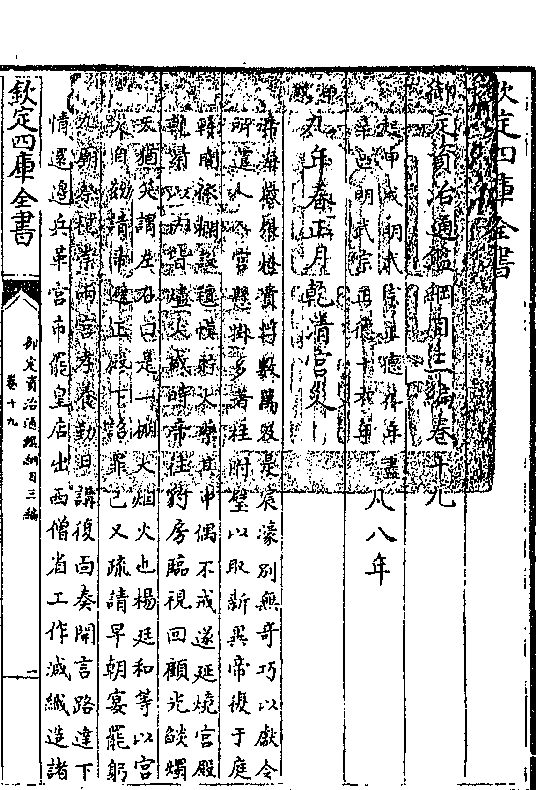 欽定四庫全書
御定資治通鑑綱目三編卷十九
起甲戌明武宗正德九年盡
辛巳明武宗正德十六年凡八年
九年春正月乾清宮災
帝每歲張燈費浮數萬及是宸濠別無奇巧以獻令
所遣人入宮懸掛多著柱附壁以取新異帝復于庭
軒間依欄設氊幙貯火藥其中偶不戒遂延燒宮殿
乾清以內皆燼火熾時帝往豹房臨視回顧光燄燭
天猶笑謂左右曰是一棚大烟火也楊廷和等以宮
殿自劾請避正殿下詔罪己又疏請早朝宴罷躬
九廟祭祀崇兩宮孝養勤日講復面奏開言路達下
情還邊兵革宮市罷皇店出西僧省工作減織造諸
欽定四庫全書
御定資治通鑑綱目三編
卷十九
一